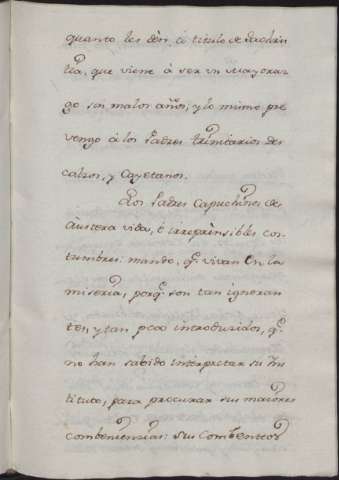 quanto les dèn, è titulo de Sachris
tìa, que viene à ser un Mayoraz-
go sin malos años, y lo mismo pre
vengo à los Padres trinitarios des
calzos, y Cayetanos.
Los Padres Capuchinos de
àustera vida, è irreprènsibles cos-
tumbres: mando, q.e vivan en la
miseria, porq.e son tan ignoran
tes, y tan poco introducidos, q.e
no han sabido interpretar su Ins
tituto, para procurar sus maiores
combeniencias: sus Combentos